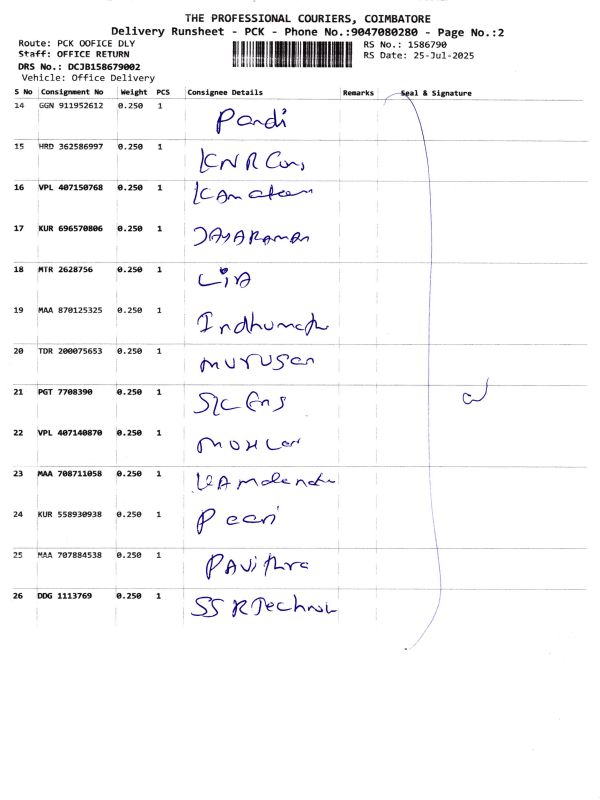 THE PROFESSIONAL COURIERS, COIMBATORE
Delivery Runsheet - PCK - Phone No.:9047080280 - Page No.:2
Route: PCK OOFICE DLY RS No.: 1586790
Staff: OFFICE RETURN RS Date: 25-Jul-2025
DRS No.: DCJB158679002
Vehicle: Office Delivery
S No Consignment No Weight PCS Consignee Details Remarks Seal & Signature
14 GGN 911952612 0.250 1 Pandi
15 HRD 362586997 0.250 1 KNR Cons
16 VPL 407150768 0.250 1
17 KUR 696570806 0.250 1 JAYARAMAN
18 MTR 2628756 0.250 1
19 MAA 870125325 0.250 1 Indhumath
20 TDR 200075653 0.250 1 murugan
21 PGT 7708390 0.250 1
22 VPL 407140870 0.250 1
23 MAA 708711058 0.250 1
24 KUR 558930938 0.250 1
25 MAA 707884538 0.250 1 PAVithra
26 DDG 1113769 0.250 1 SS R Technol